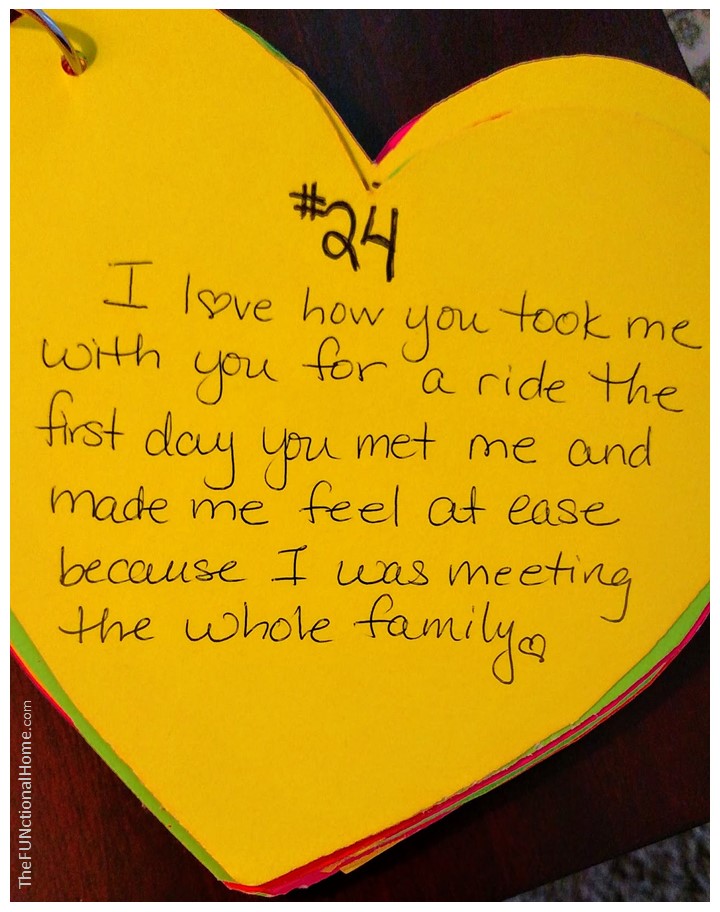 #24
I love how you took me
with you for a ride the
first day you met me and
made me feel at ease
because I was meeting
the whole family
TheFUNctionalHome.com